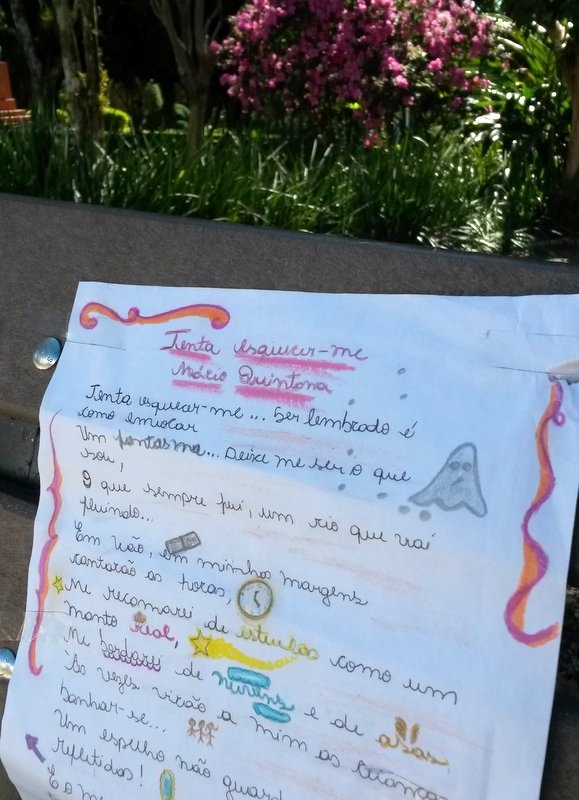 Tenta esquecer-me
Mário Quintana
Tenta esquecer-me... Ser lembrado é
como evocar
Um fantasma... Deixe me ser o que
sou,
O que sempre fui, um rio que vai
fluindo...
Em vão, em minhas margens
cantarão as horas,
Me recamarei de estrelas como um
manto real,
Me bordarei de nuvens e de asas
Às vezes virão a mim as crianças
banhar-se...
Um espelho não guarda
refletidas!
E o